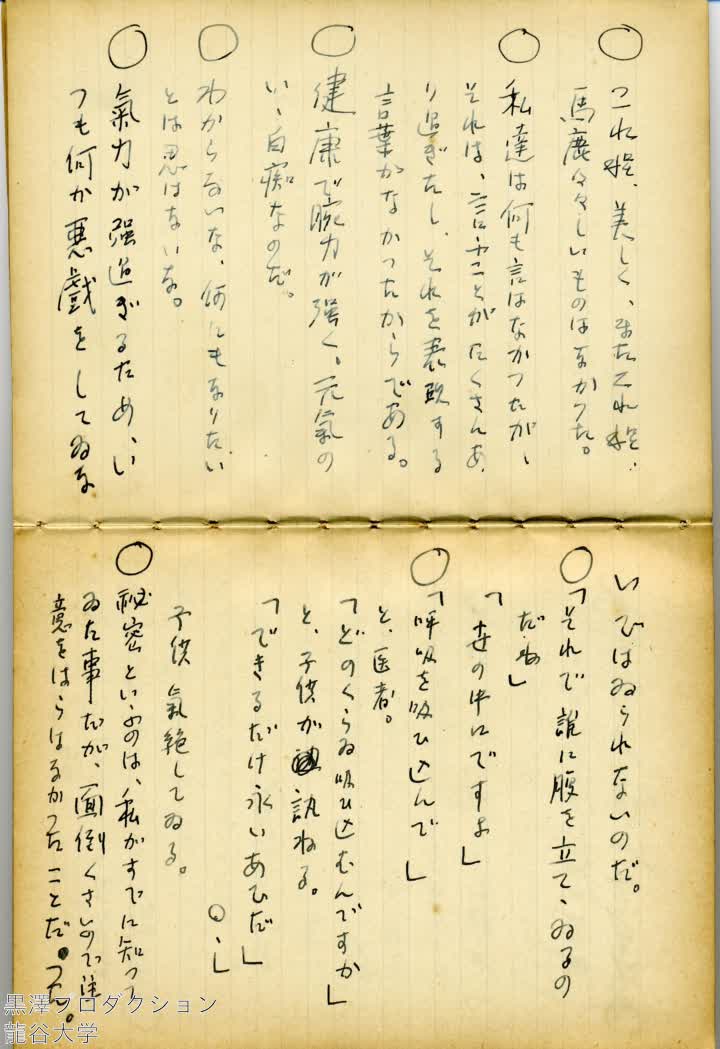 ○ これ程、美しく、またこれ程、
馬鹿々々しいものはなかつた。
○ 私達は何も言はなかつたが、
それは、言ふことがたくさんあ
り過ぎたし、それを表現する
言葉がなかつたからである。
○ 健康で腕力が强く、元氣の
いゝ白痴なのだ。
○ わからないな、何にもなりたい
とは思はないな。
○ 氣力が强過ぎるため、い
つも何か悪戯をしてゐな
いではゐられないのだ。
○「それで誰に腹を立てゝゐるの
だね」
「世の中にですよ」
○「呼吸を吸ひ込んで」
と、医者。
「どのくらゐ吸ひ込むんですか」
と、子供が訊ねる。
「できるだけ永いあひだ」
○、」
子供 氣絶してゐる。
○ 秘密といふのは、私がすでに知つて
ゐた事だが、面倒くさいので注
意をはらはなかつたことだ。つた。
黒澤プロダクション
龍谷大学